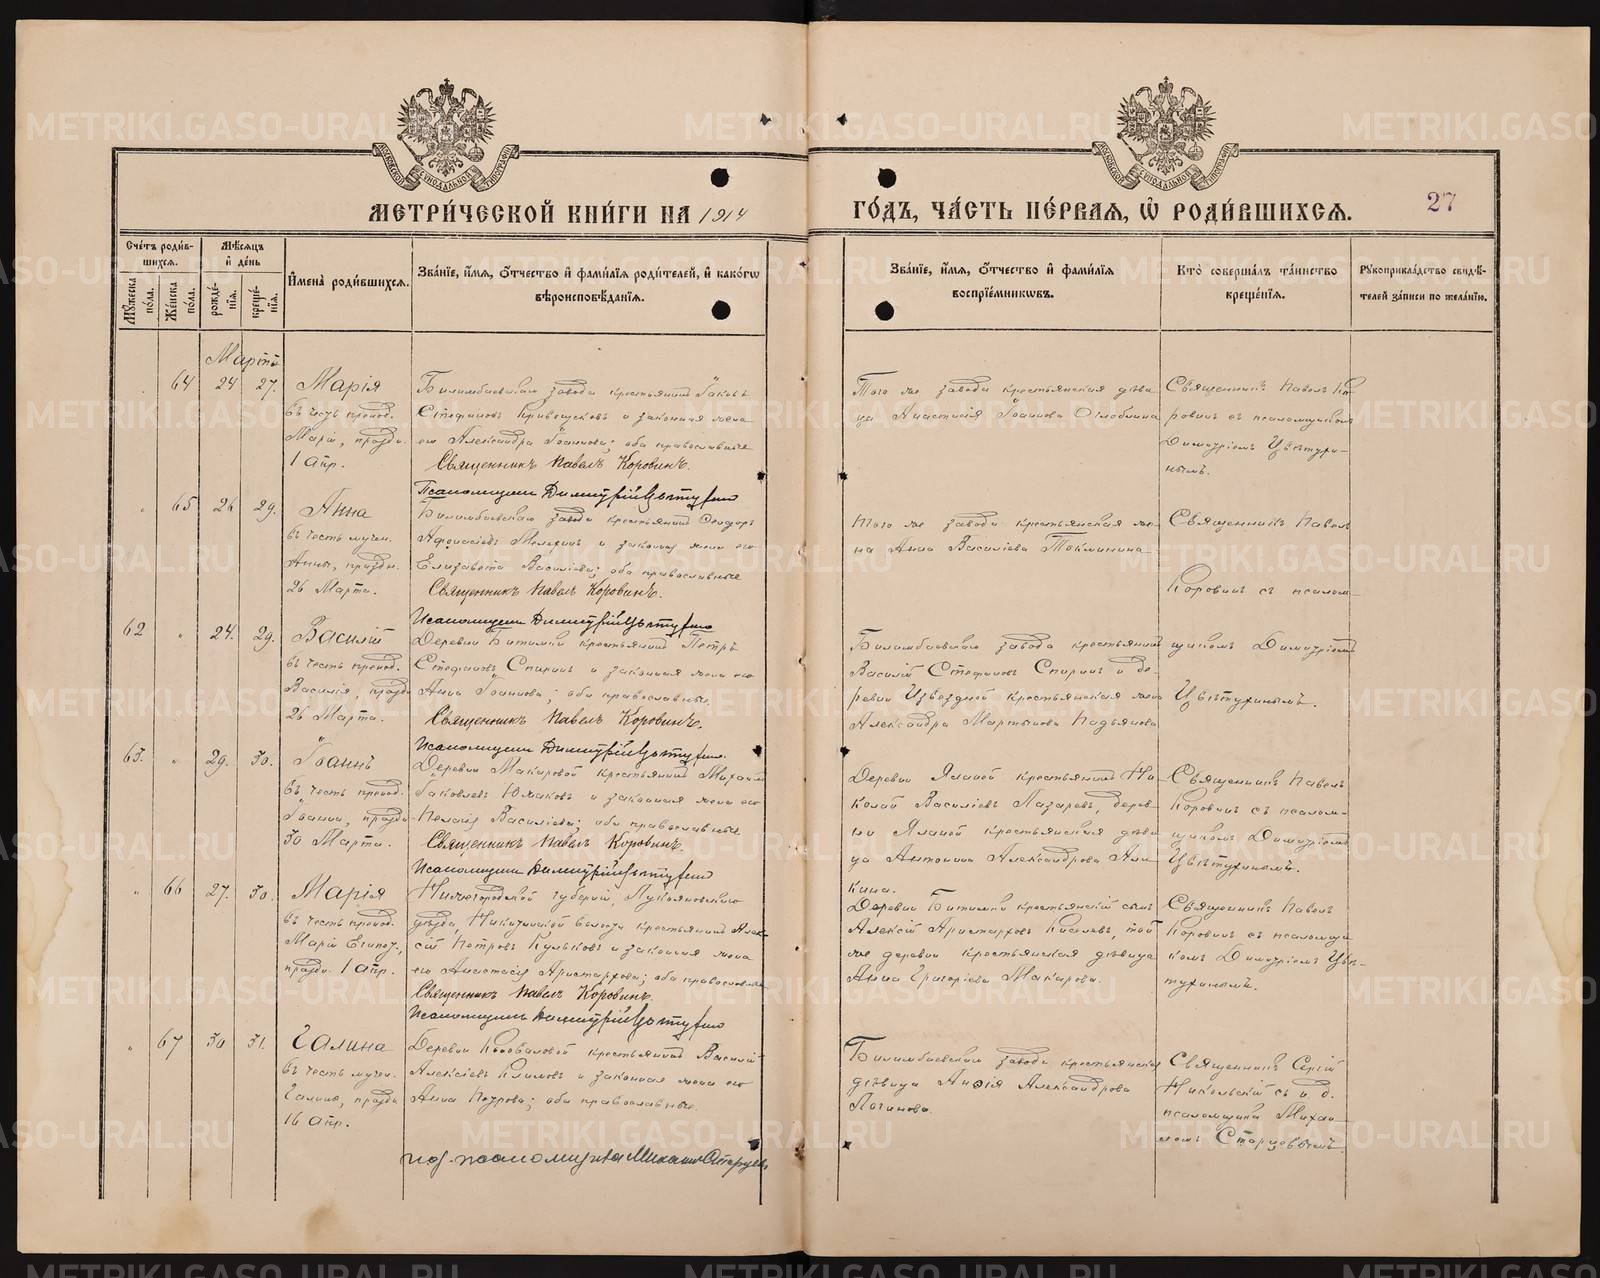 МЕТРИ́ЧЕСКОЙ КНИ́ГИ НА 1914
ГО́ДЪ, ЧА́СТЬ ПЕ́РВАЯ, Ѡ҆ РОДИ́ВШИХСЯ.
27
Сче́тъ роди́в-
шихсѧ.
Мꙋ́жеска по́ла.
Же́нска по́ла.
Мѣ́сѧцъ
и҆ де́нь
рожде́-
нїѧ.
креще́-
нїѧ.
И҆мена̀ роди́вшихсѧ.
Зва́нїе, и҆́мѧ, ѻ҆́тчество и҆ фами́лїѧ роди́телей, и҆ како́гѡ
вѣроисповѣ́данїѧ.
Зва́нїе, и҆́мѧ, ѻ҆́тчество и҆ фами́лїѧ
воспрїе́мникѡвъ.
Кто̀ соверша́лъ та́инство
креще́нїѧ.
Рꙋкоприкла́дство свидѣ́-
телей за́писи по жела́нїю.
Мартъ
64 24 27. Марія
въ честь препод.
Маріи, праздн.
1 Апр.
Билимбаевскаго завода крестьянинъ Іаковъ
Стефановъ Кривощековъ и законная жена
его Александра Іоаннова; оба православные
Священникъ Павелъ Коровинъ.
Псаломщикъ Димитрій Цвѣтухинъ
Того же завода крестьянская дѣви-
ца Анастасія Іоаннова
Священникъ Павелъ Ко-
ровинъ съ псаломщикомъ
Димитріемъ Цвѣтухи-
нымъ.
65 26 29. Анна
въ честь мучен.
Анны, праздн.
26 Марта.
Билимбаевскаго завода крестьянинъ Ѳеодоръ
и законная жена его
Елизавета Васильева; оба православные
Священникъ Павелъ Коровинъ.
Псаломщикъ Димитрій Цвѣтухинъ
Того же завода крестьянская же-
на Анна Васильева
Священникъ Павелъ
Коровинъ съ псалом-
щикомъ Димитріемъ
Цвѣтухинымъ.
62 " 24. 29. Василій
въ честь препод.
Василія, праздн.
26 Марта.
Деревни Битимки крестьянинъ Петръ
Стефановъ Спиринъ и законная жена его
Анна Іоаннова; оба православные.
Священникъ Павелъ Коровинъ.
Псаломщикъ Димитрій Цвѣтухинъ.
Билимбаевскаго завода крестьянинъ
Василій Стефановъ Спиринъ и де-
ревни Извездной крестьянская жена
Александра Мартынова
63. " 29. 30. Іоаннъ
въ честь препод.
Іоанна, праздн.
30 Марта.
Деревни Макаровой крестьянинъ Михаилъ
Іаковлевъ Южаковъ и законная жена его
Пелагія Васильева; оба православные.
Священникъ Павелъ Коровинъ.
Псаломщикъ Димитрій Цвѣтухинъ
Деревни Яланой крестьянинъ Ни-
колай Васильевъ Лазаревъ, дерев-
ни Яланой крестьянская дѣви-
ца Антонина Александрова Али-
кина.
Священникъ Павелъ
Коровинъ съ псалом-
щикомъ Димитріемъ
Цвѣтухинымъ.
" 66 27. 30. Марія
въ честь препод.
Маріи Египет.,
праздн. 1 Апр.
Нижегородской губерніи, Лукояновскаго
уѣзда, волости крестьянинъ Алек-
сій Петровъ Кульковъ и законная жена
его Анастасія Аристархова; оба православные
Священникъ Павелъ Коровинъ.
Псаломщикъ Димитрій Цвѣтухинъ
Деревни Битимки крестьянскій сынъ
Алексій Аристарховъ Киселевъ, той
же деревни крестьянская дѣвица
Анна Григорьева Макарова.
Священникъ Павелъ
Коровинъ съ псаломщи-
комъ Димитріемъ Цвѣ-
тухинымъ.
" 67 30 31. Галина
въ честь мучен.
Галины, праздн.
16 Апр.
Деревни Коноваловой крестьянинъ Василій
Алексіевъ Климовъ и законная жена его
Анна Петрова; оба православные.
и. д. псаломщика Михаилъ Старцевъ
Билимбаевскаго завода крестьянская
дѣвица Анфія Александрова
Логинова.
Священникъ Сергій
Никольскій съ и. д.
псаломщика Михаи-
ломъ Старцевымъ.
METRIKI.GASO-URAL.RU